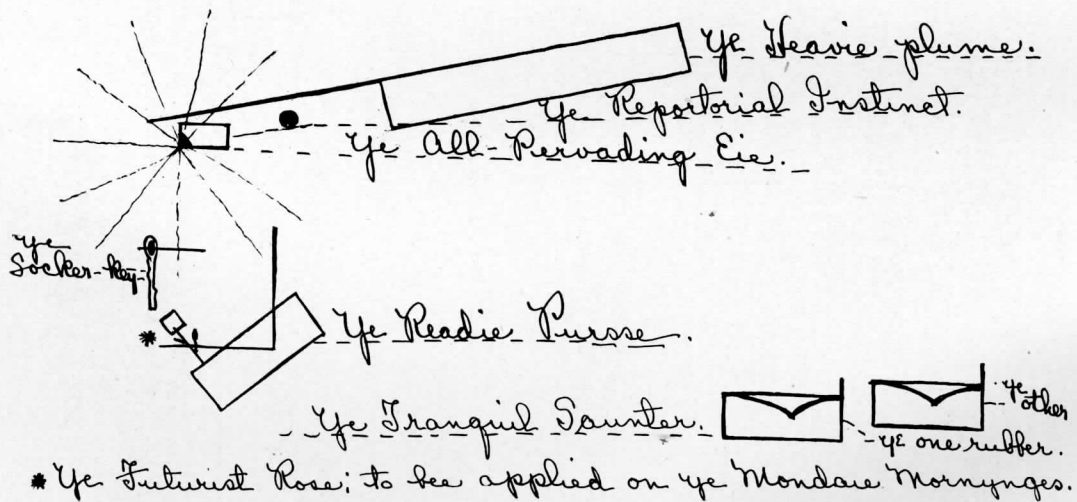 Ye Heavie plume.
Ye Reportorial Instinct.
Ye All-Pervading Eie.
Ye
Socker-Key
Ye Readie Pursse.
Ye Tranquil Saunter.
ye
other
ye one rubber.
* Ye Futurist Rose; to bee applied on ye Mondaie Mornynges.